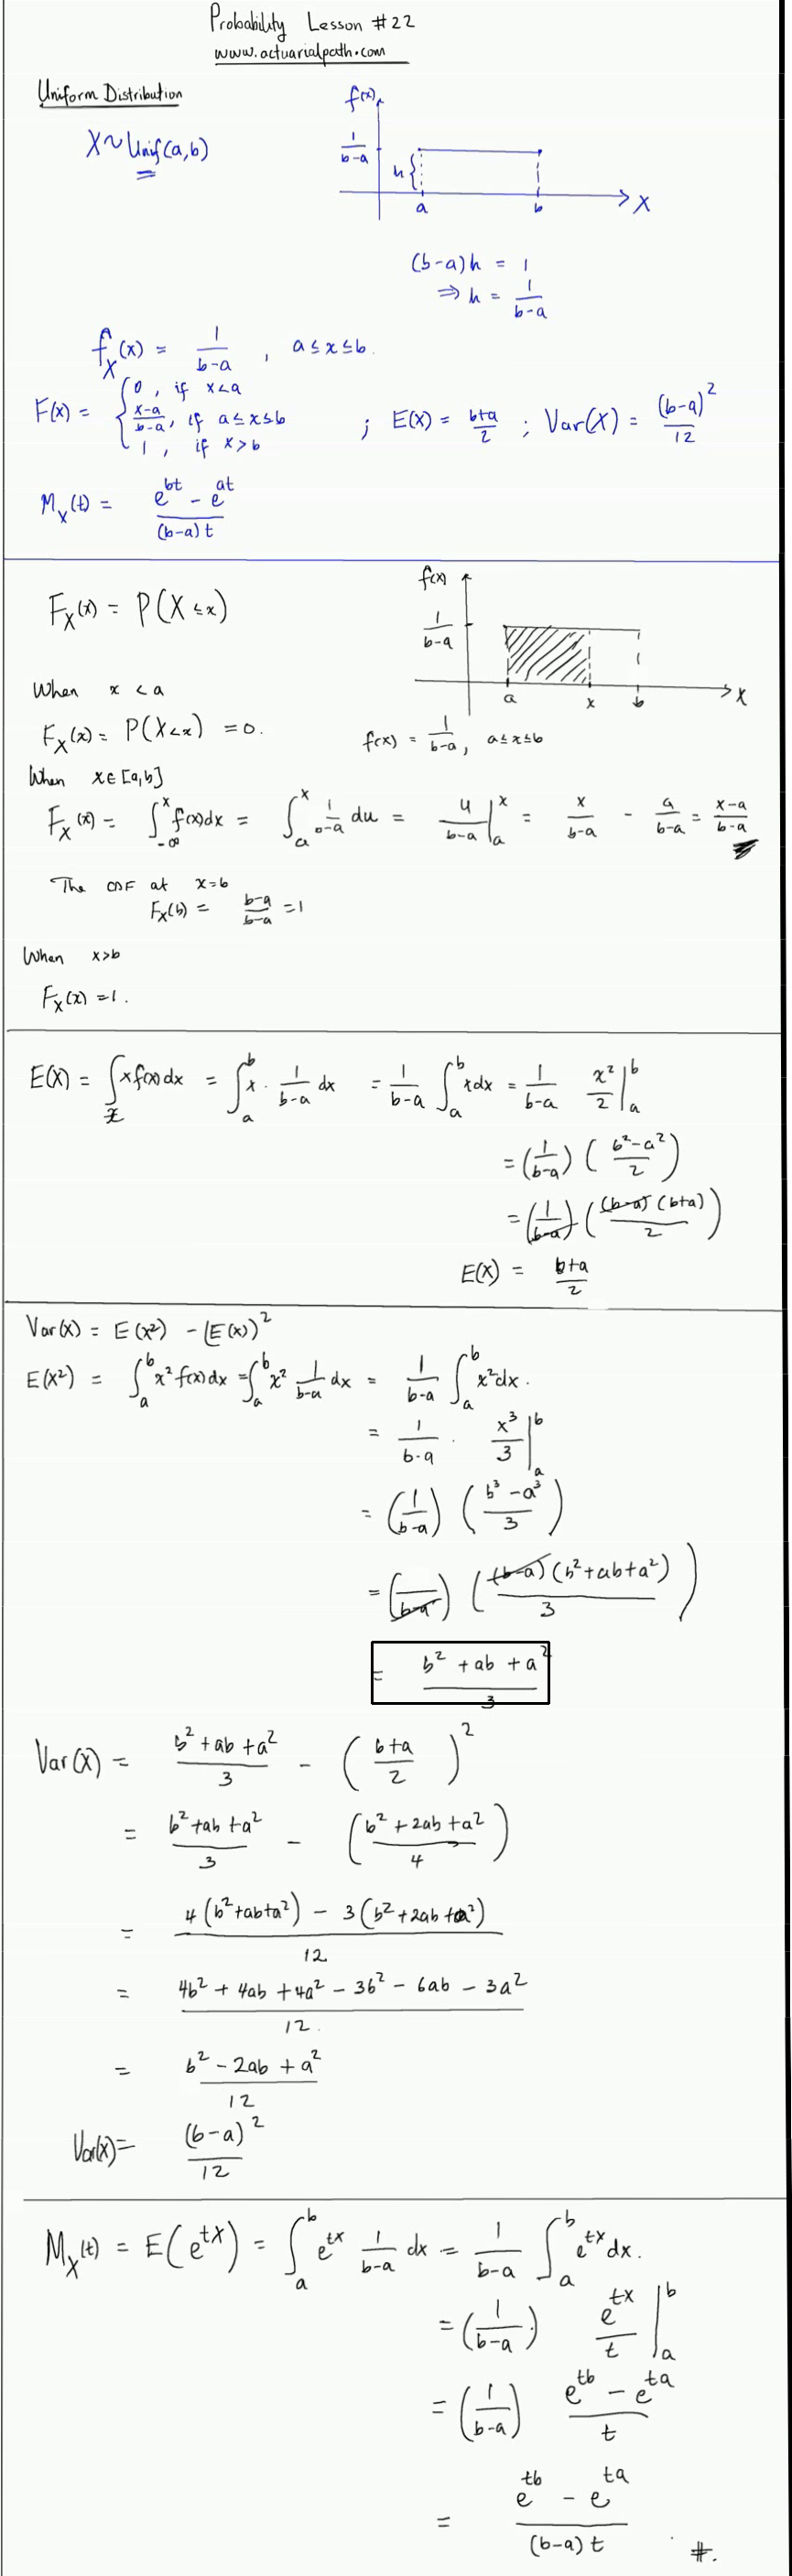 Probability Lesson #22
www.actuarialpath.com
Uniform Distribution
X ~ Unif(a,b)
f(x)
1/(b-a)
h{
a b X
(b-a)h = 1
⇒ h = 1/(b-a)
f_X(x) = 1/(b-a) , a ≤ x ≤ b.
F(x) = { 0, if x<a
(x-a)/(b-a), if a ≤ x ≤ b ; E(X) = (b+a)/2 ; Var(X) = (b-a)²/12
1, if x>b
M_X(t) = (e^bt - e^at)/((b-a)t)
f(x)
F_X(x) = P(X ≤ x)
1/(b-a)
a x b X
When x < a
F_X(x) = P(X<x) = 0.
f(x) = 1/(b-a), a ≤ x ≤ b
When x∈[a,b]
F_X(x) = ∫_-∞^x f(x)dx = ∫_a^x 1/(b-a) du = u/(b-a) |_a^x = x/(b-a) - a/(b-a) = (x-a)/(b-a)
The CDF at x=b
F_X(b) = (b-a)/(b-a) = 1
When x>b
F_X(x) = 1.
E(X) = ∫_x x f(x) dx = ∫_a^b x · 1/(b-a) dx = 1/(b-a) ∫_a^b x dx = 1/(b-a) x²/2 |_a^b
= (1/(b-a)) ((b²-a²)/2)
= (1/(b-a)) ((b-a)(b+a)/2)
E(X) = (b+a)/2
Var(X) = E(X²) - (E(X))²
E(X²) = ∫_a^b x² f(x) dx = ∫_a^b x² 1/(b-a) dx = 1/(b-a) ∫_a^b x² dx.
= 1/(b-a) · x³/3 |_a^b
= (1/(b-a)) ((b³-a³)/3)
= (1/(b-a)) ((b-a)(b²+ab+a²)/3)
= (b² + ab + a²)/3
Var(X) = (b²+ab+a²)/3 - ((b+a)/2)²
= (b²+ab+a²)/3 - ((b²+2ab+a²)/4)
= (4(b²+ab+a²) - 3(b²+2ab+a²))/12
= (4b² + 4ab + 4a² - 3b² - 6ab - 3a²)/12.
= (b² - 2ab + a²)/12
Var(X) = (b-a)²/12
M_X(t) = E(e^tX) = ∫_a^b e^tx 1/(b-a) dx = 1/(b-a) ∫_a^b e^tx dx.
= (1/(b-a)) e^tx/t |_a^b
= (1/(b-a)) (e^tb - e^ta)/t
= (e^tb - e^ta)/((b-a)t) #.